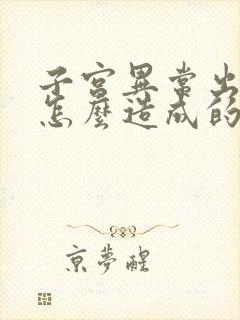 子宮異常出
怎麼造成的
京夢醒